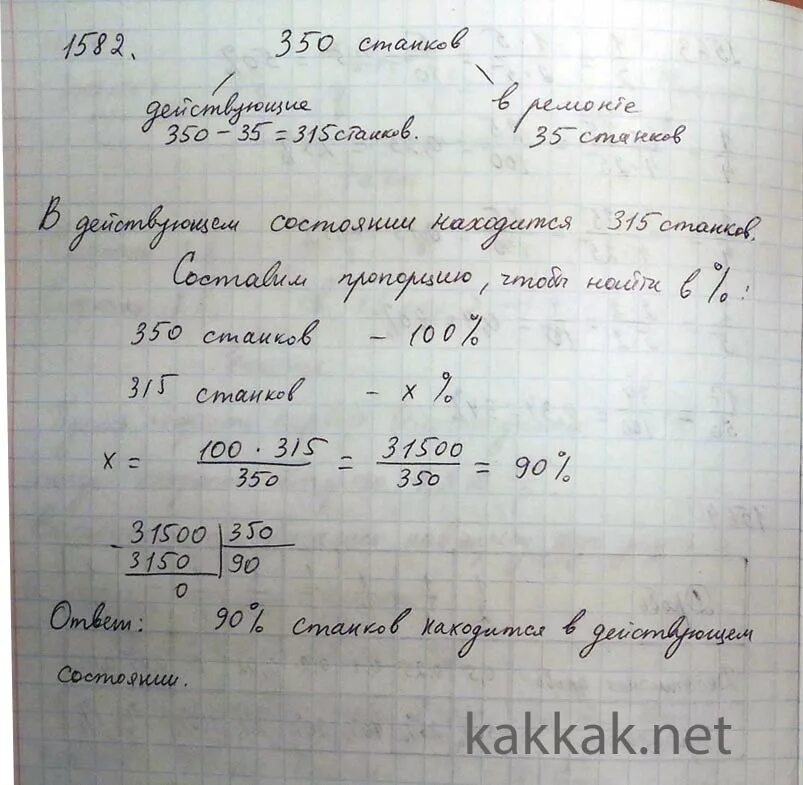 1582. 350 станков
действующие в ремонте
350 - 35 = 315 станков. 35 станков
В действующем состоянии находится 315 станков.
Составим пропорцию, чтобы найти в %:
350 станков - 100%
315 станков - x %
x = 100 · 315 / 350 = 31500 / 350 = 90%
31500 | 350
3150 | 90
0
Ответ: 90% станков находится в действующем
состоянии.
kakkak.net